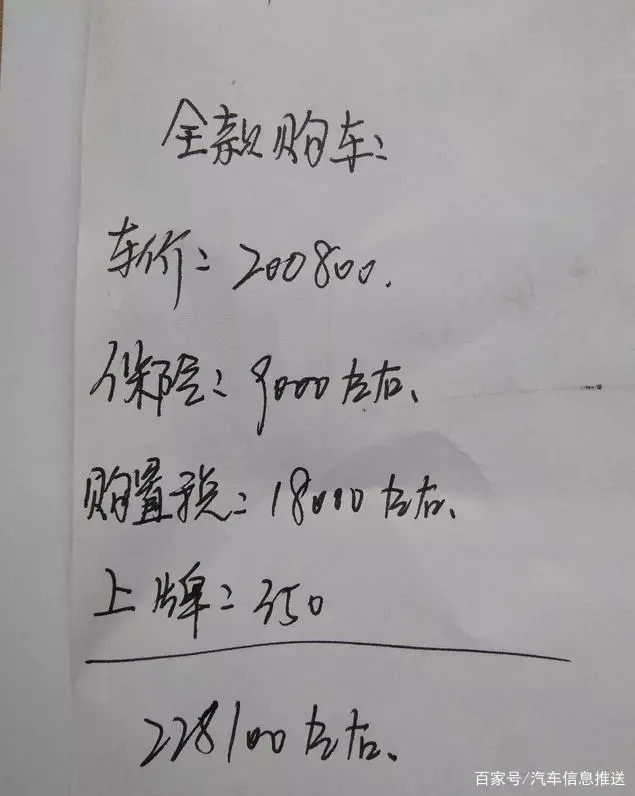 全款购车:
车价: 200800.
保险: 9000左右、
购置税: 18000左右、
上牌: 350
228100左右、
百家号/汽车信息推送